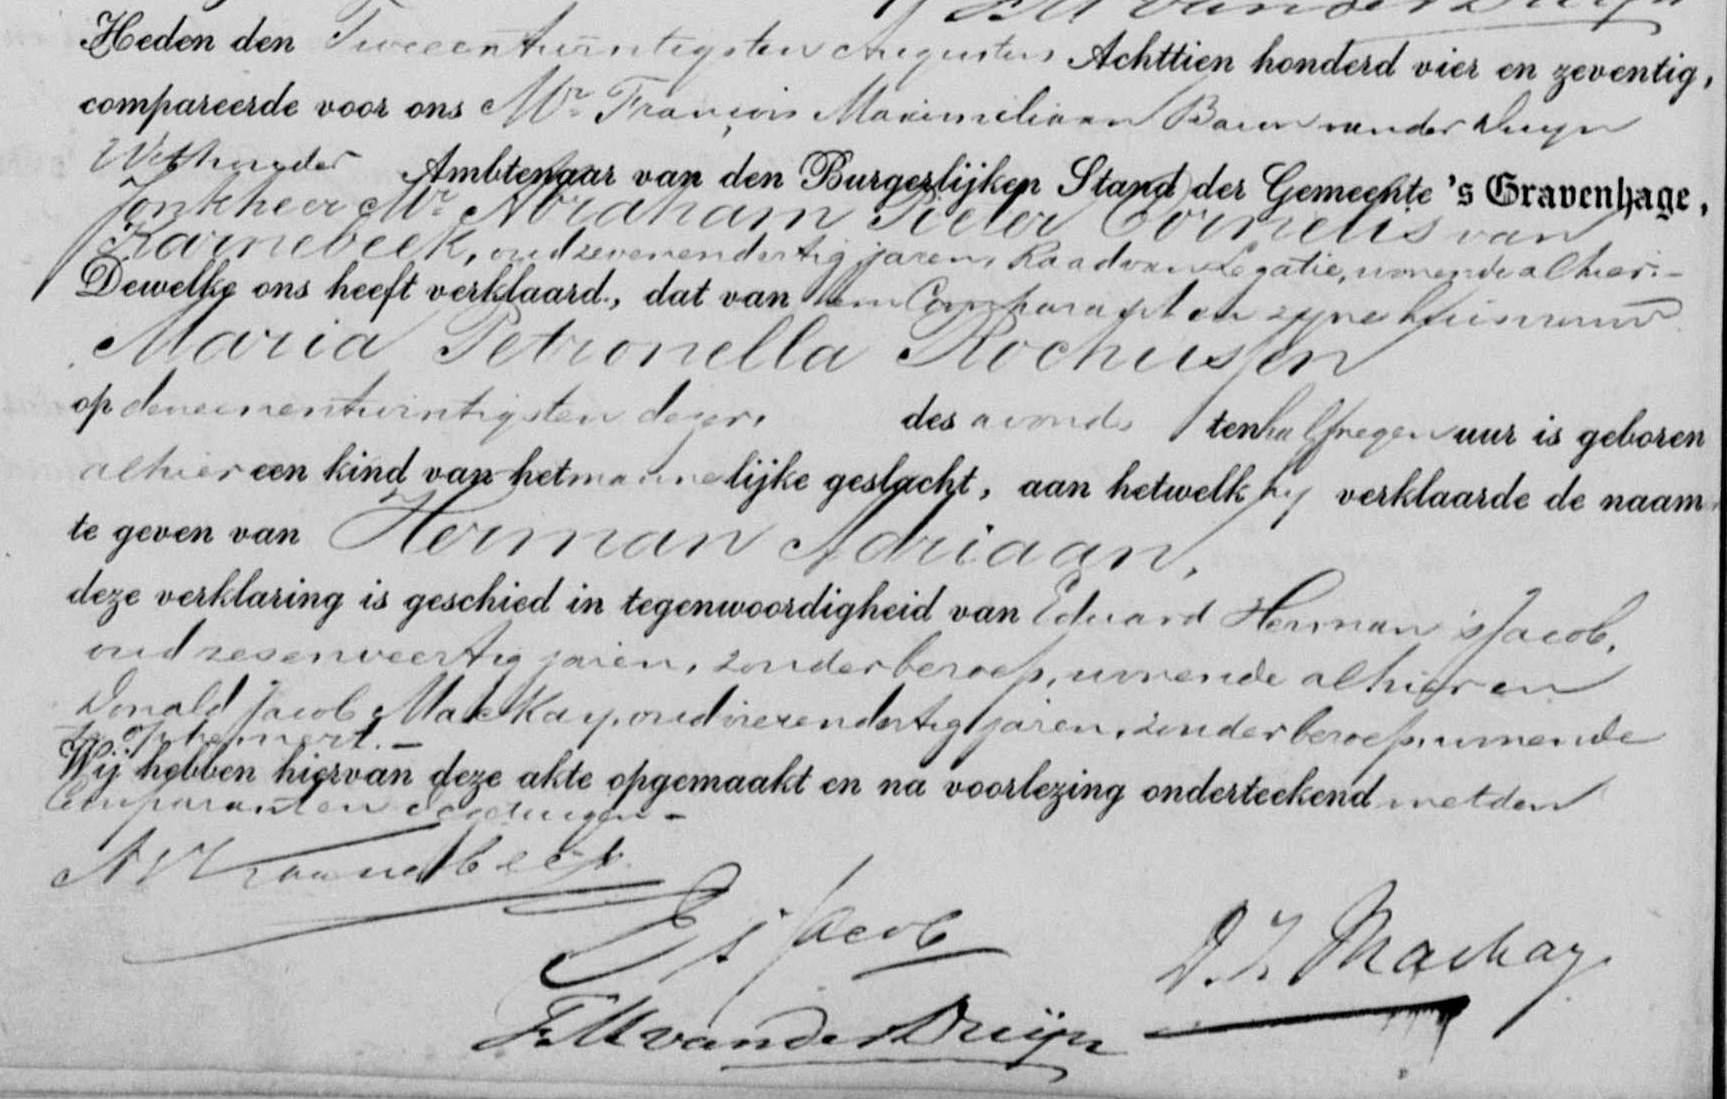 F. M. van der Duijn
Heden den Tweeentwintigsten Augustus Achttien honderd vier en zeventig,
compareerde voor ons Mr. François Maximiliaan Baron van der Duyn
Wethouder Ambtenaar van den Burgerlijken Stand der Gemeente 's Gravenhage,
Jonkheer Mr. Abraham Pieter Cornelis van
Karnebeek, oud zevenendertig jaren, Raad van Legatie, wonende alhier.-
Dewelke ons heeft verklaard, dat van hem Comparant en zyne huisvrouw
Maria Petronella Rochussen
op den eenentwintigsten dezer, des avonds ten half negen uur is geboren
alhier een kind van het mannelijke geslacht, aan hetwelk hy verklaarde de naam
te geven van Herman Adriaan,
deze verklaring is geschied in tegenwoordigheid van Eduard Herman s'Jacob,
oud zesenveertig jaren, zonder beroep, wonende alhier en
Donald Jacob MacKay, oud vierendertig jaren, zonder beroep, wonende
te Ophemert.-
Wij hebben hiervan deze akte opgemaakt en na voorlezing onderteekend met den
Comparant en Getuigen-
A V Karnebeek
E s'Jacob
D. J. Mackay.
F. M. van der Duijn